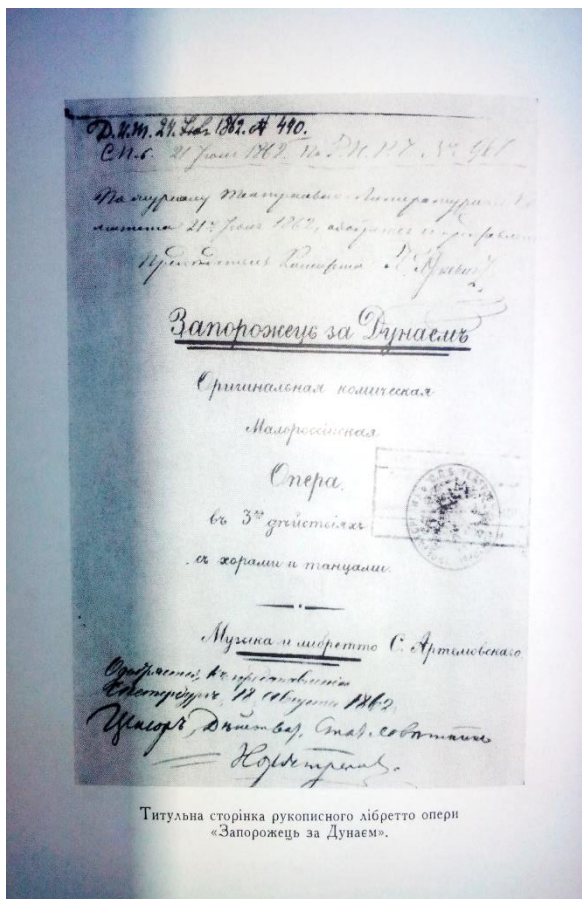 Д.И.Т. 24 1862 № 490.
С.П.б. 21 1862. №
По журналу Театрально Литературнаго Ко
митета 21го 1862, одобрено
Председатель Комитета
Запорожець за Дунаемъ
Оригинальная комическая
Малороссійская
Опера.
въ 3хъ дѣйствіяхъ
съ хорами и танцами.
Музыка и либретто С. Артемовскаго
Одобряется къ представленію
18 августа 1862
Цензоръ, Дѣйствит. Стат. совѣтникъ
Нордстремъ.
Титульна сторінка рукописного лібретто опери
«Запорожець за Дунаєм».